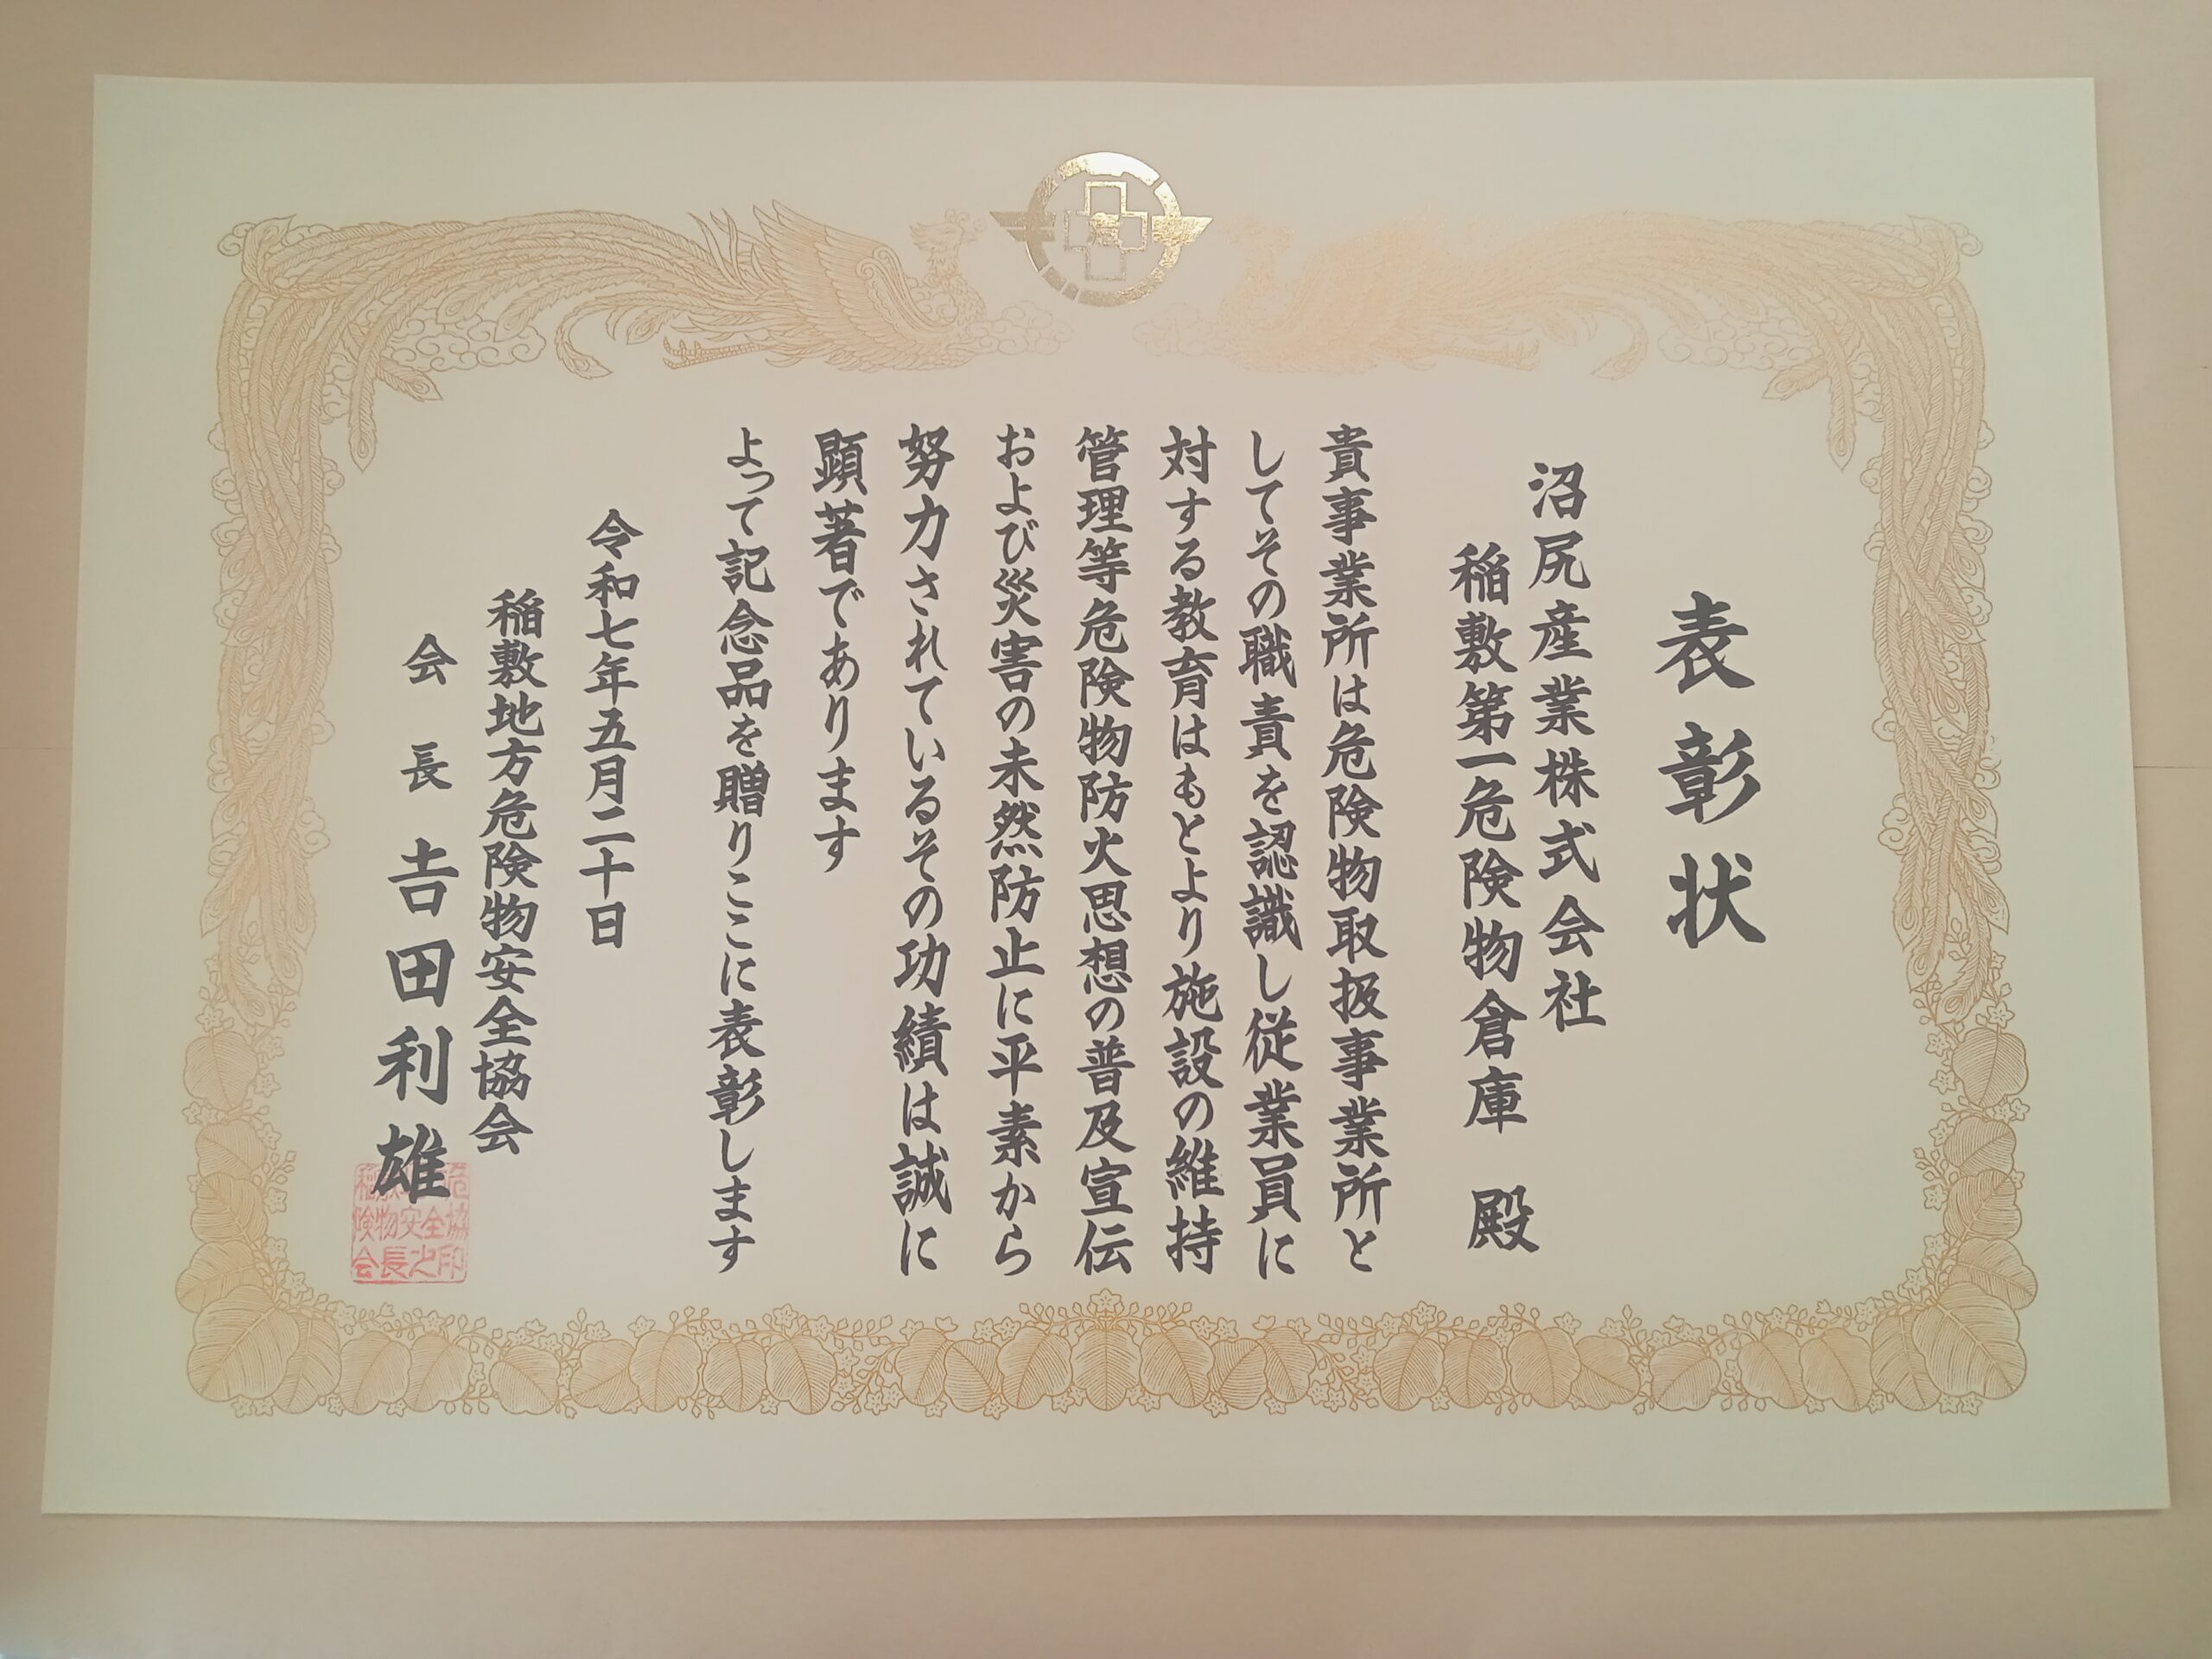 表彰状
沼尻産業株式会社
稲敷第一危険物倉庫 殿
貴事業所は危険物取扱事業所と
してその職責を認識し従業員に
対する教育はもとより施設の維持
管理等危険物防火思想の普及宣伝
および災害の未然防止に平素から
努力されているその功績は誠に
顕著であります
よって記念品を贈りここに表彰します
令和七年五月二十日
稲敷地方危険物安全協会
会長 𠮷田利雄
険物安全協
会長之印